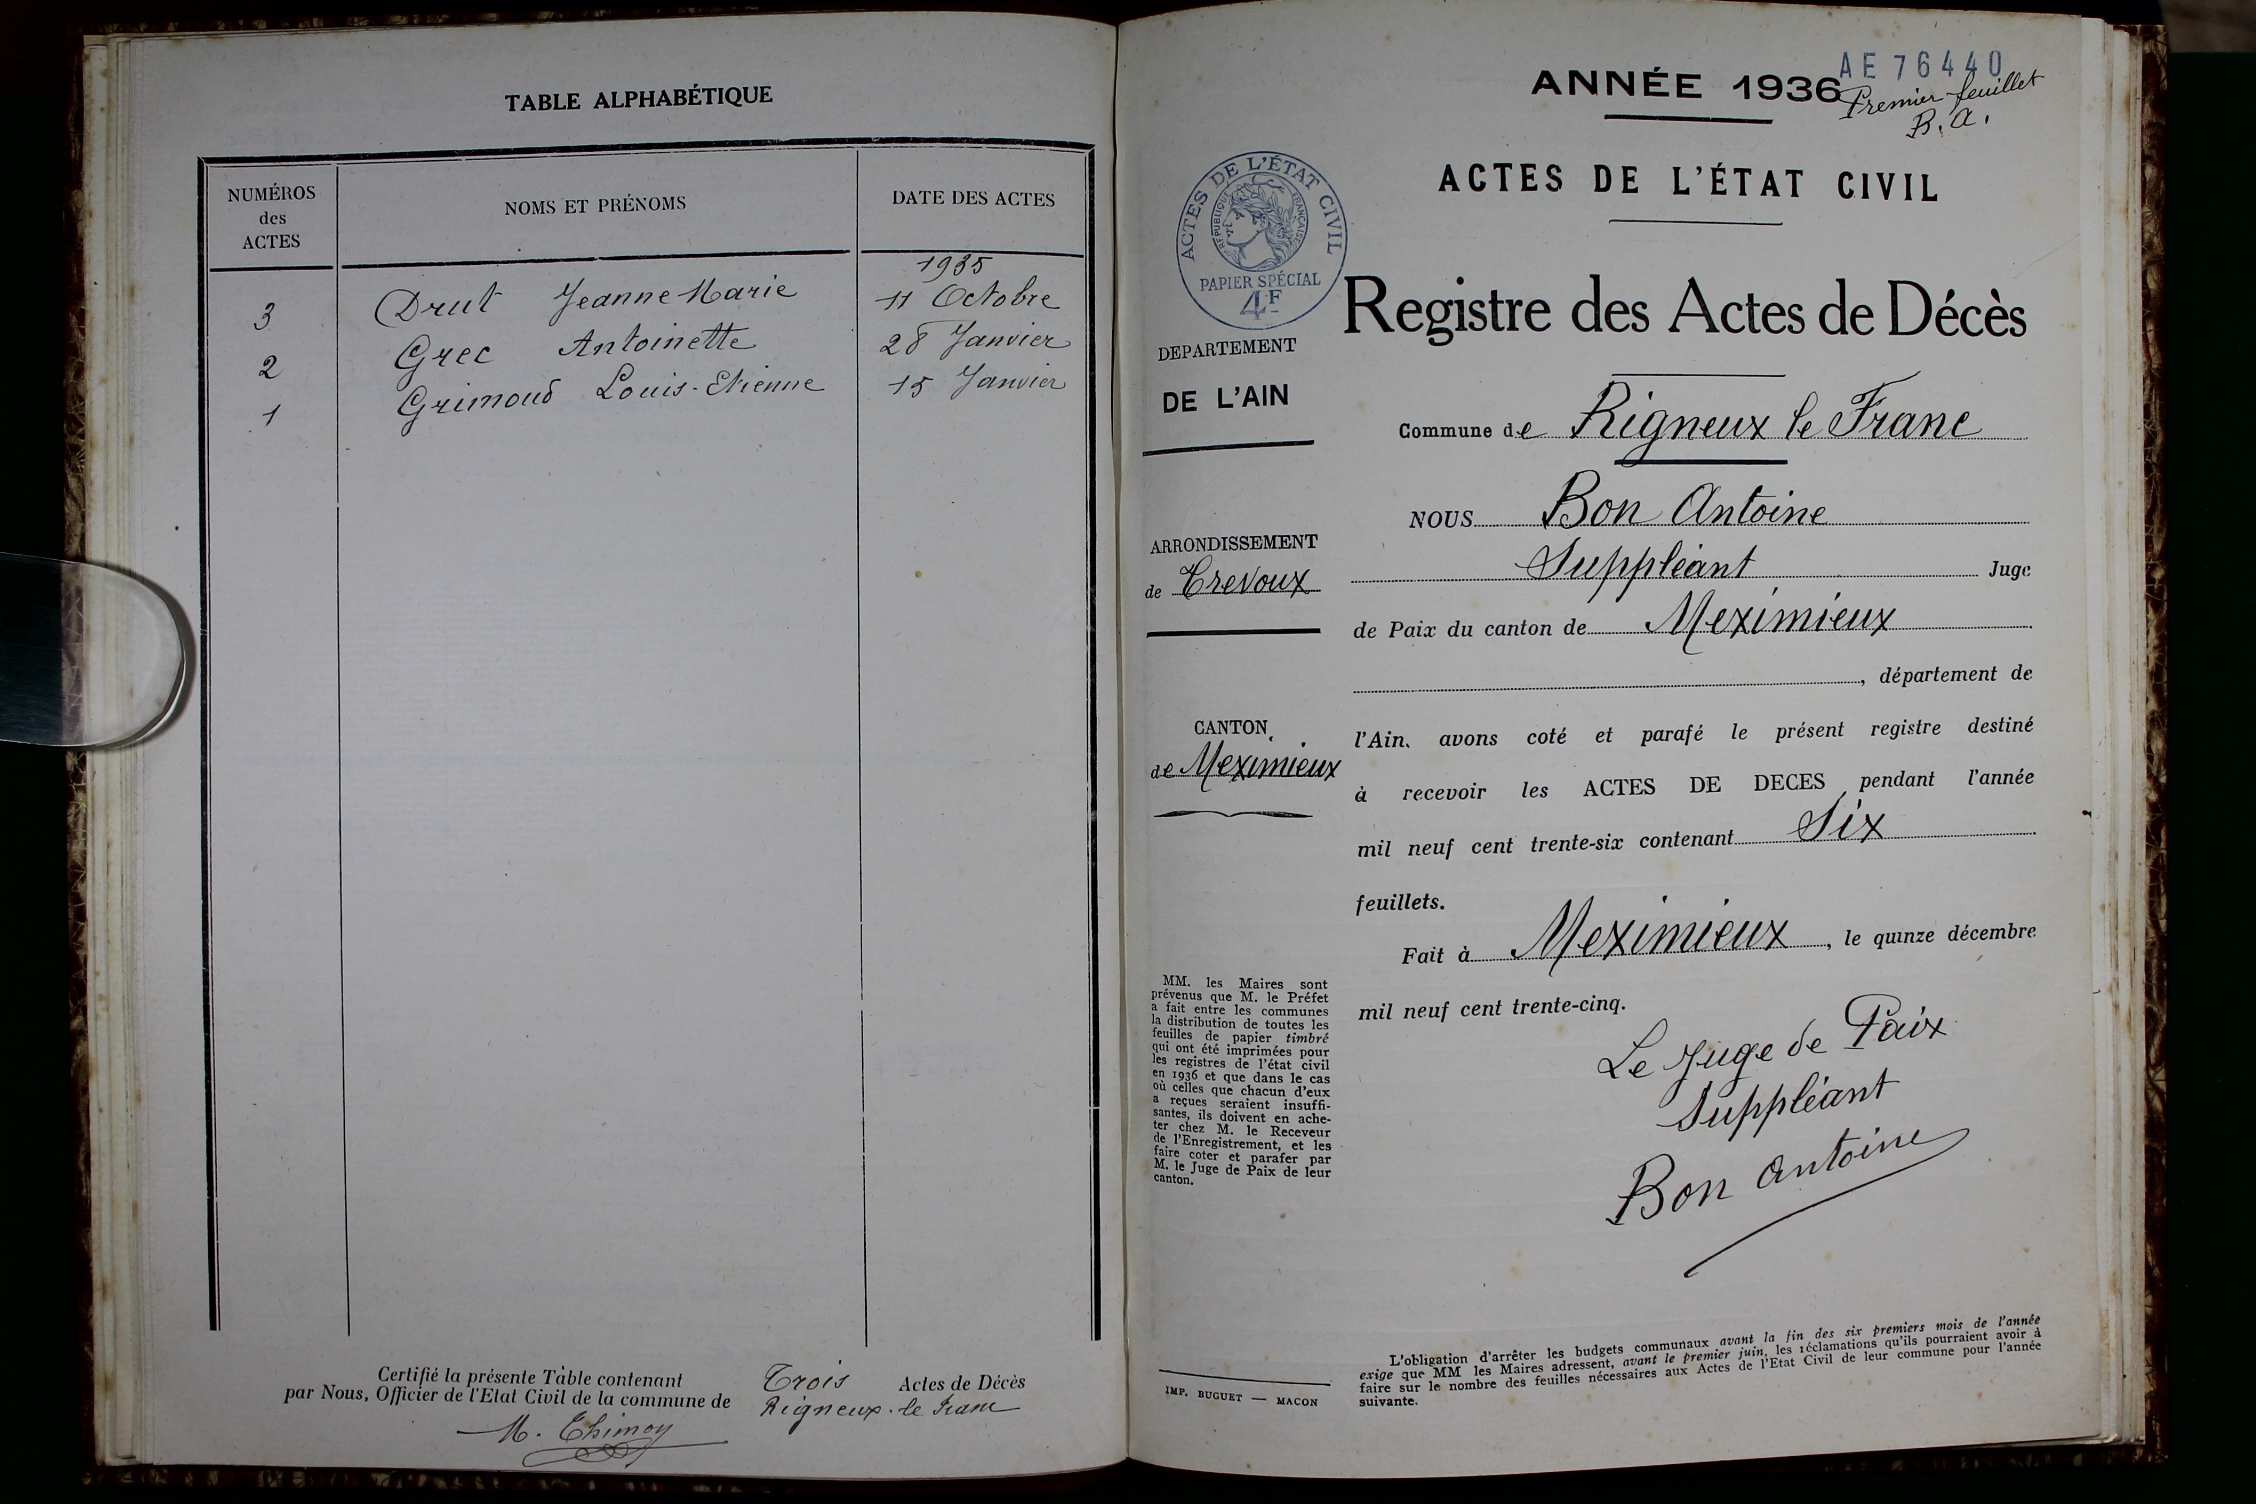 TABLE ALPHABÉTIQUE
NUMÉROS
des
ACTES
NOMS ET PRÉNOMS
DATE DES ACTES
1935
3 Drut Jeanne Marie 11 Octobre
2 Grec Antoinette 28 Janvier
1 Grimoud Louis-Etienne 15 Janvier
Certifié la présente Table contenant Trois Actes de Décès
par Nous, Officier de l'Etat Civil de la commune de Rigneux-le Franc
M. Thimon
AE 76440
ANNÉE 1936
Premier feuillet
B. A.
ACTES DE L'ÉTAT CIVIL
ACTES DE L'ÉTAT CIVIL
RÉPUBLIQUE FRANÇAISE
PAPIER SPÉCIAL
4F
Registre des Actes de Décès
DEPARTEMENT
DE L'AIN
ARRONDISSEMENT
de Trevoux
CANTON
de Meximieux
MM. les Maires sont
prévenus que M. le Préfet
a fait entre les communes
la distribution de toutes les
feuilles de papier timbré
qui ont été imprimées pour
les registres de l'état civil
en 1936 et que dans le cas
où celles que chacun d'eux
a reçues seraient insuffi-
santes, ils doivent en ache-
ter chez M. le Receveur
de l'Enregistrement, et les
faire coter et parafer par
M. le Juge de Paix de leur
canton.
IMP. BUGUET — MACON
Commune de Rigneux le Franc
NOUS Bon Antoine
Suppléant Juge
de Paix du canton de Meximieux
, département de
l'Ain, avons coté et parafé le présent registre destiné
à recevoir les ACTES DE DECES pendant l'année
mil neuf cent trente-six contenant Six
feuillets.
Fait à Meximieux, le quinze décembre
mil neuf cent trente-cinq.
Le Juge de Paix
Suppléant
Bon Antoine
L'obligation d'arrêter les budgets communaux avant la fin des six premiers mois de l'année
exige que MM les Maires adressent, avant le premier juin, les réclamations qu'ils pourraient avoir à
faire sur le nombre des feuilles nécessaires aux Actes de l'Etat Civil de leur commune pour l'année
suivante.